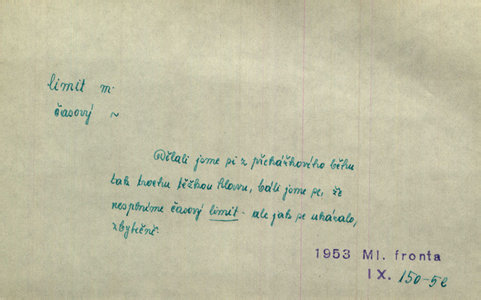 limit m.
časový ~
Dělali jsme si z překážkového běhu
tak trochu těžkou hlavu, báli jsme se, že
nesplníme časový limit - ale jak se ukázalo,
zbytečně.
1953 Ml. fronta
IX. 150-5e